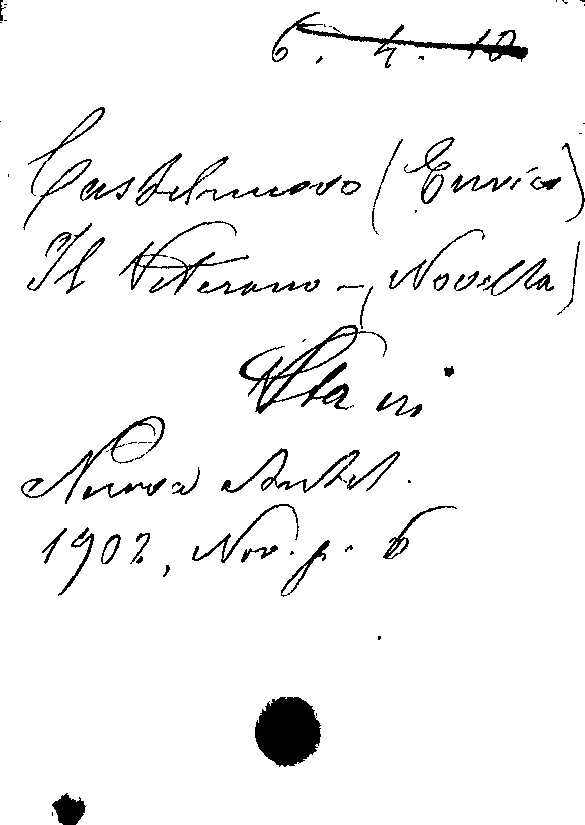 6. 4. 10
Castelnuovo (Enrico)
Il Veterano – (Novella)
Sta in
Nuova Antol.
1902, Nov. p. 6